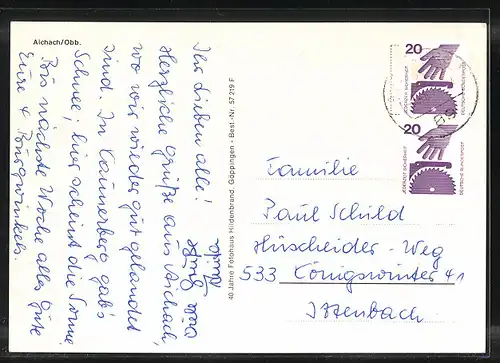 Aichach/Obb.
Ihr Lieben alle!
Herzliche Grüße aus Aichach,
wo wir wieder gut gelandet
sind. In Kaunerberg gab's
Schnee; hier scheint die Sonne
Bis nächste Woche alles Gute
Eure 4
40 Jahre Fotohaus Hildenbrand, Göppingen - Best.-Nr. 57 219 F
20
JEDERZEIT SICHERHEIT
DEUTSCHE BUNDESPOST
20
JEDERZEIT SICHERHEIT
DEUTSCHE BUNDESPOST
Familie
Paul Schild
Hüscheider-Weg
533 Königswinter 41
Ittenbach